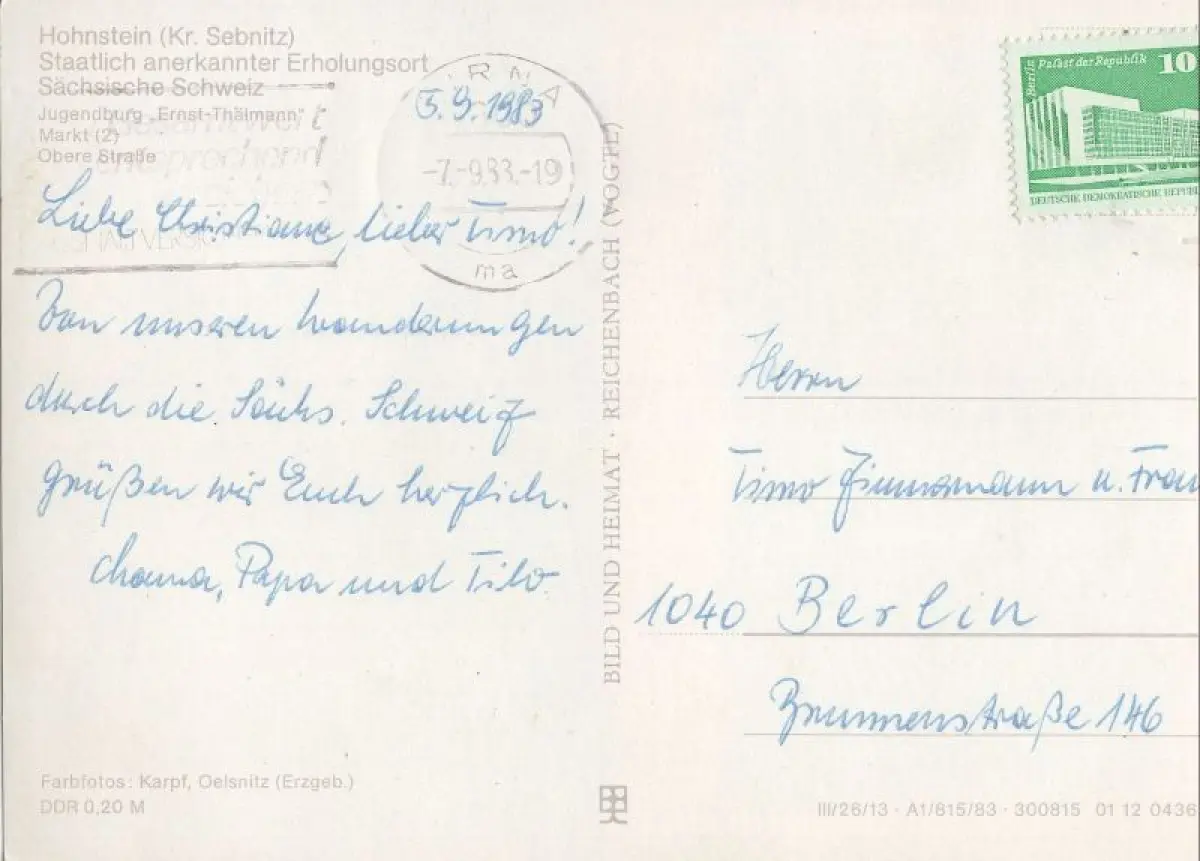 Hohnstein (Kr. Sebnitz)
Staatlich anerkannter Erholungsort
Sächsische Schweiz
Jugendburg „Ernst-Thälmann"
Markt (2)
Obere Straße
5.9.1983
-7.-9.83.-19
ma
Liebe Christiane, lieber Timo!
Von unseren Wanderungen
durch die Sächs. Schweiz
grüßen wir Euch herzlich.
Mama, Papa und Tilo.
Farbfotos: Karpf, Oelsnitz (Erzgeb.)
DDR 0,20 M
BILD UND HEIMAT · REICHENBACH (VOGTL)
Berlin Palast der Republik 10
DEUTSCHE DEMOKRATISCHE REPUBL
Herrn
Timo Zinnamann u. Frau
1040 Berlin
Brunnenstraße 146
III/26/13 · A1/815/83 · 300815 01 12 0436